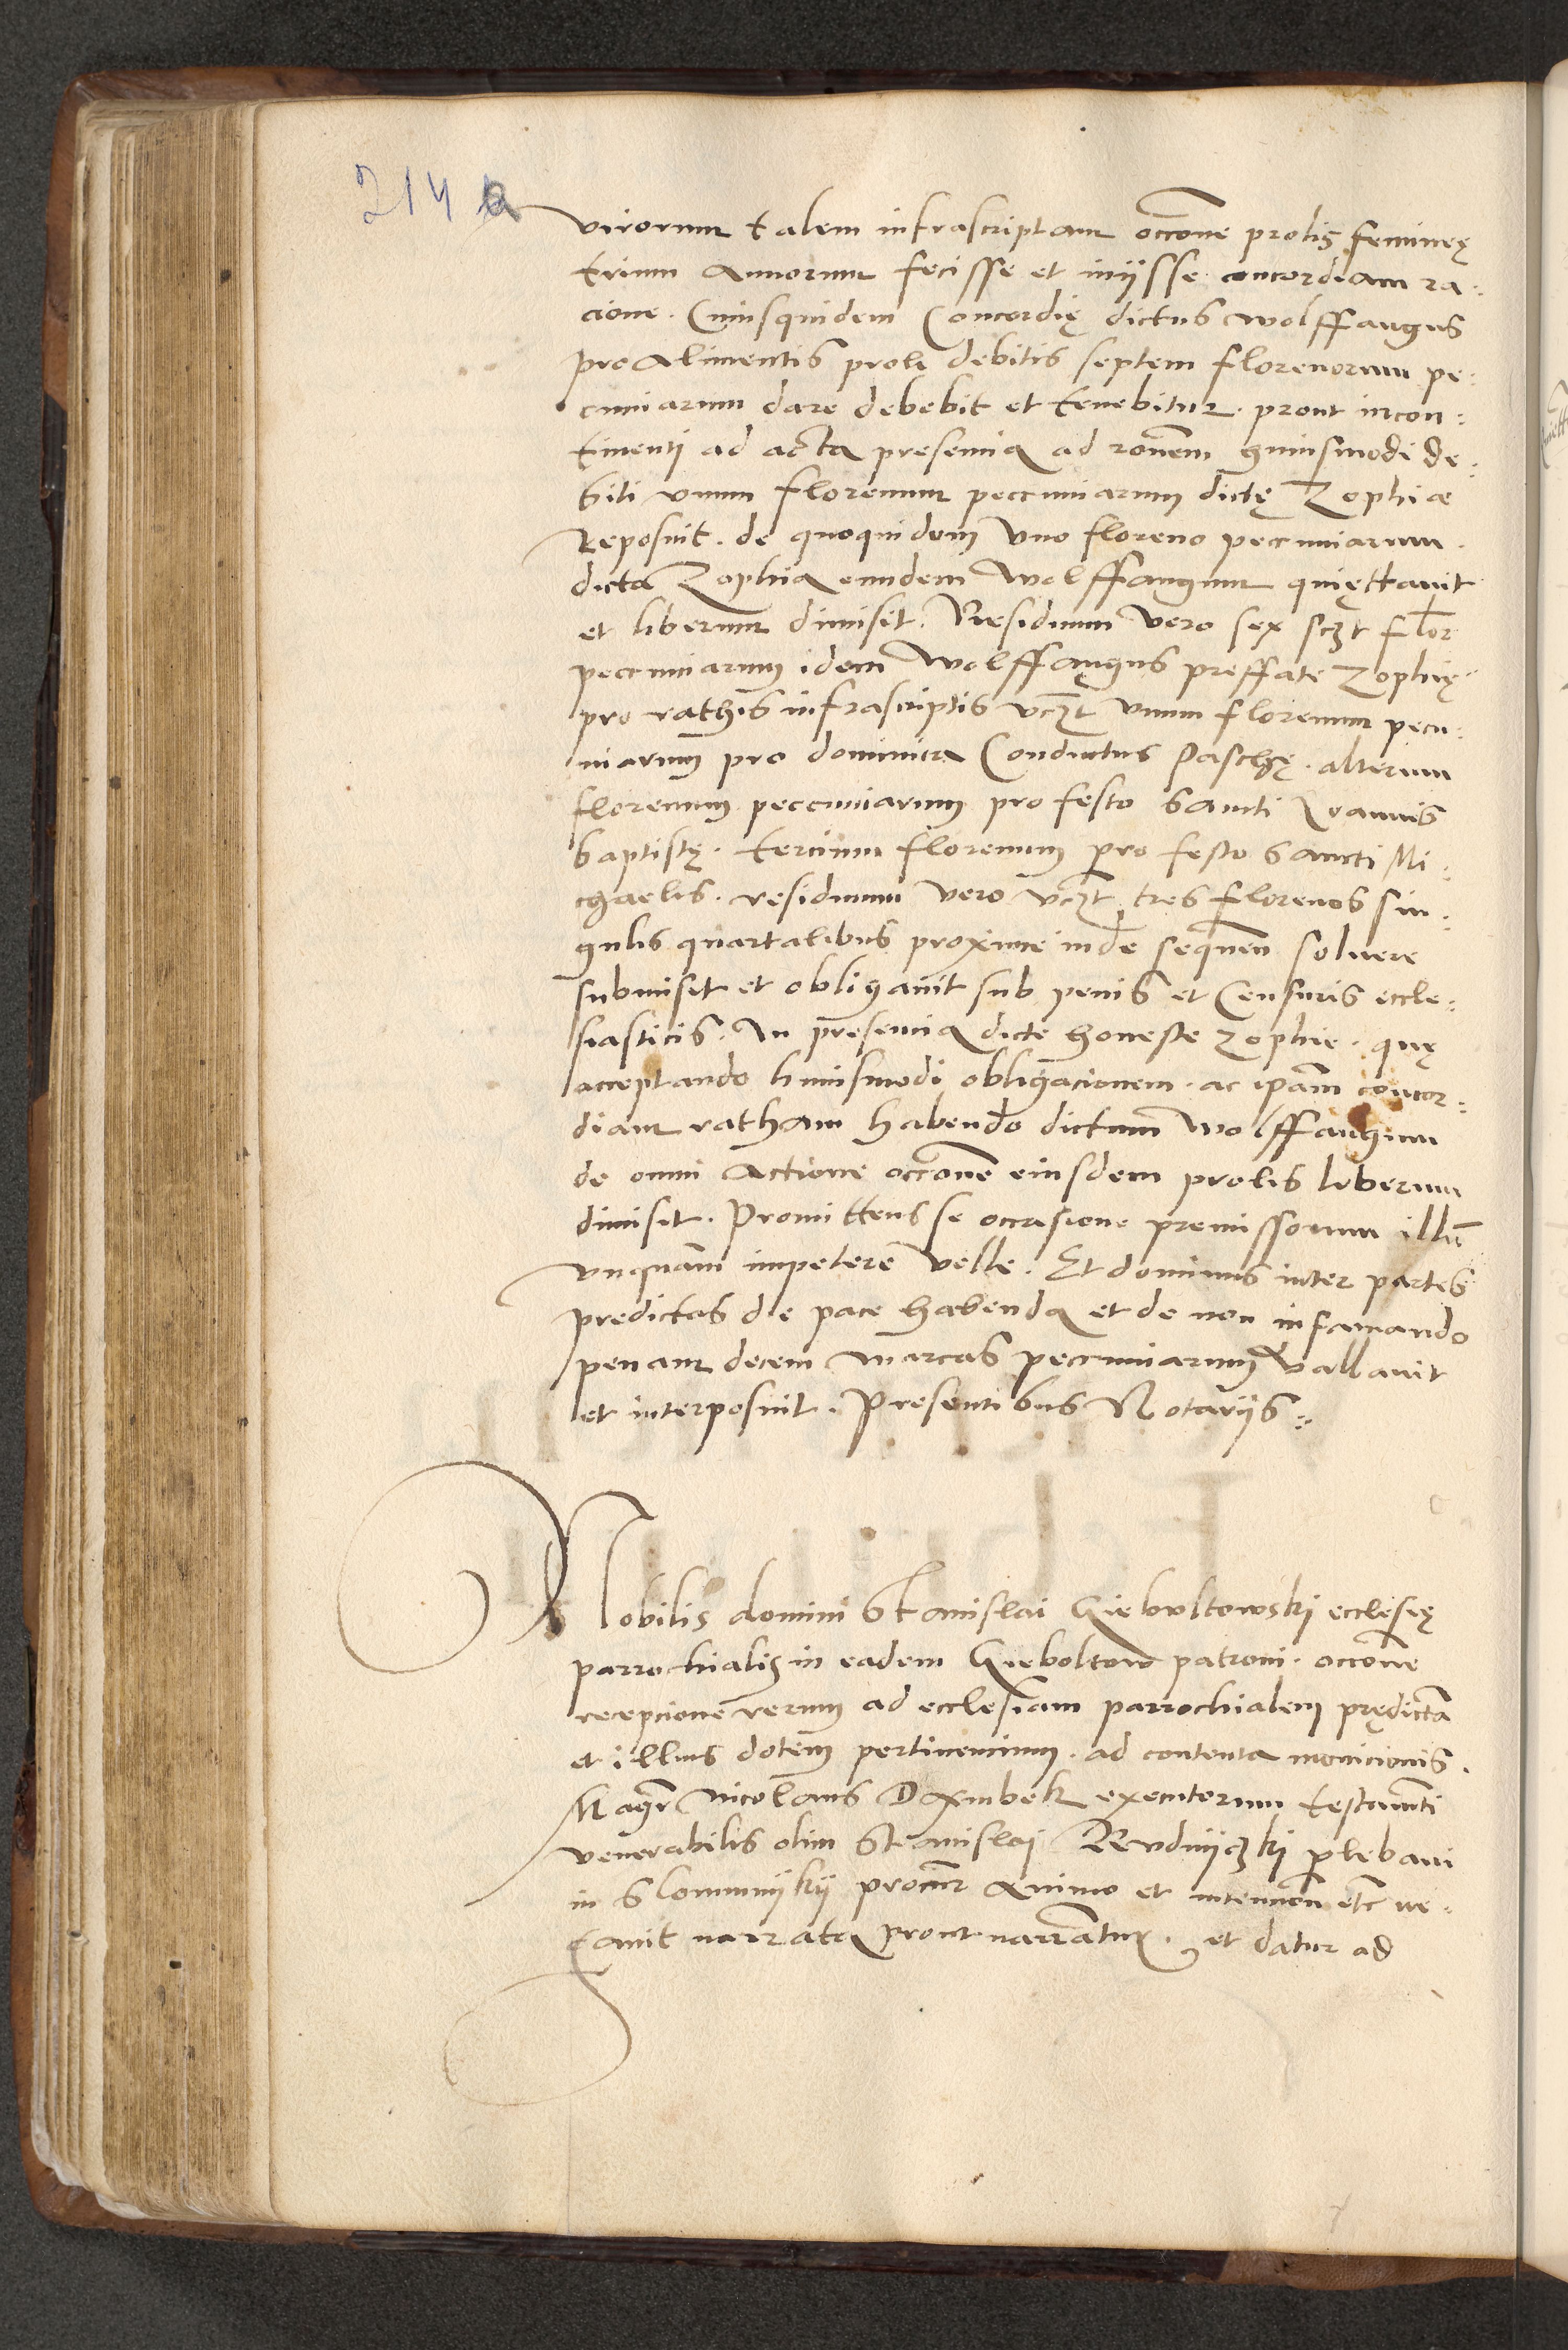 214 a
virorum talem infrascriptam occ̄one prolis femineę
trium annorum fecisse et iniisse concordiam ra-
cione. Cuiusquidem Concordię dictus Wolffangus
pro alimentis proli debitis septem florenorum pe-
cuniarum dare debebit et tenebitur. prout incon-
tinenti ad acta presencia ad rōnem huiusmodi de-
biti vnum florenum peccuniarum dictę Zophiae
Reposuit. de quoquidem vno floreno peccuniarum.
dicta Zophia eundem Wolffangum quięttauit
et liberum dimisit. Residuum vero sex sczt flor
peccuniarum idem Wolffangus preffate Zophię
pro rathis infrascriptis vczt vnum florenum pecu-
niarum pro dominica Conductus Paschę. alterum
florenum peccuniarum pro festo Sancti Joannis
baptistę. tercium florenum pro festo Sancti Mi-
chaelis. residuum vero vczt tres florenos sin-
gulis quartalibus proxime inde sequen̄ soluere
submisit et obligauit sub penis et Censuris eccle-
siasticis. In presencia dicte honeste Zophie. quę
acceptando huiusmodi obligacionem. ac ipam̄ concor-
diam ratham habendo dictum Wolffangum
de omni actione occ̄one eiusdem prolis liberum
dimisit. Promittens se occasione premissorum illū
vnquam impetere velle. Et dominus inter partes
predictas de pace habenda et de non infamando
penam decem marcas peccuniarum vallauit
et interposuit. Presentibus Notariis.
Nobilis domini Stanislai Giebultowski ecclesię
parrochialis in eadem Gieboltow patroni. occ̄one
recepcione rerum ad ecclesiam parrochialem prędictā
et illius dotem pertinencium. ad contenta monicionis.
Magr̄ Nicolaus Dambek executorum testamenti
venerabilis olim Stanislai Rudniczki plebani
in Slomniky procur̄ animo et intencion̄ etc ne-
gauit narrata prout narrantur. et datur ad